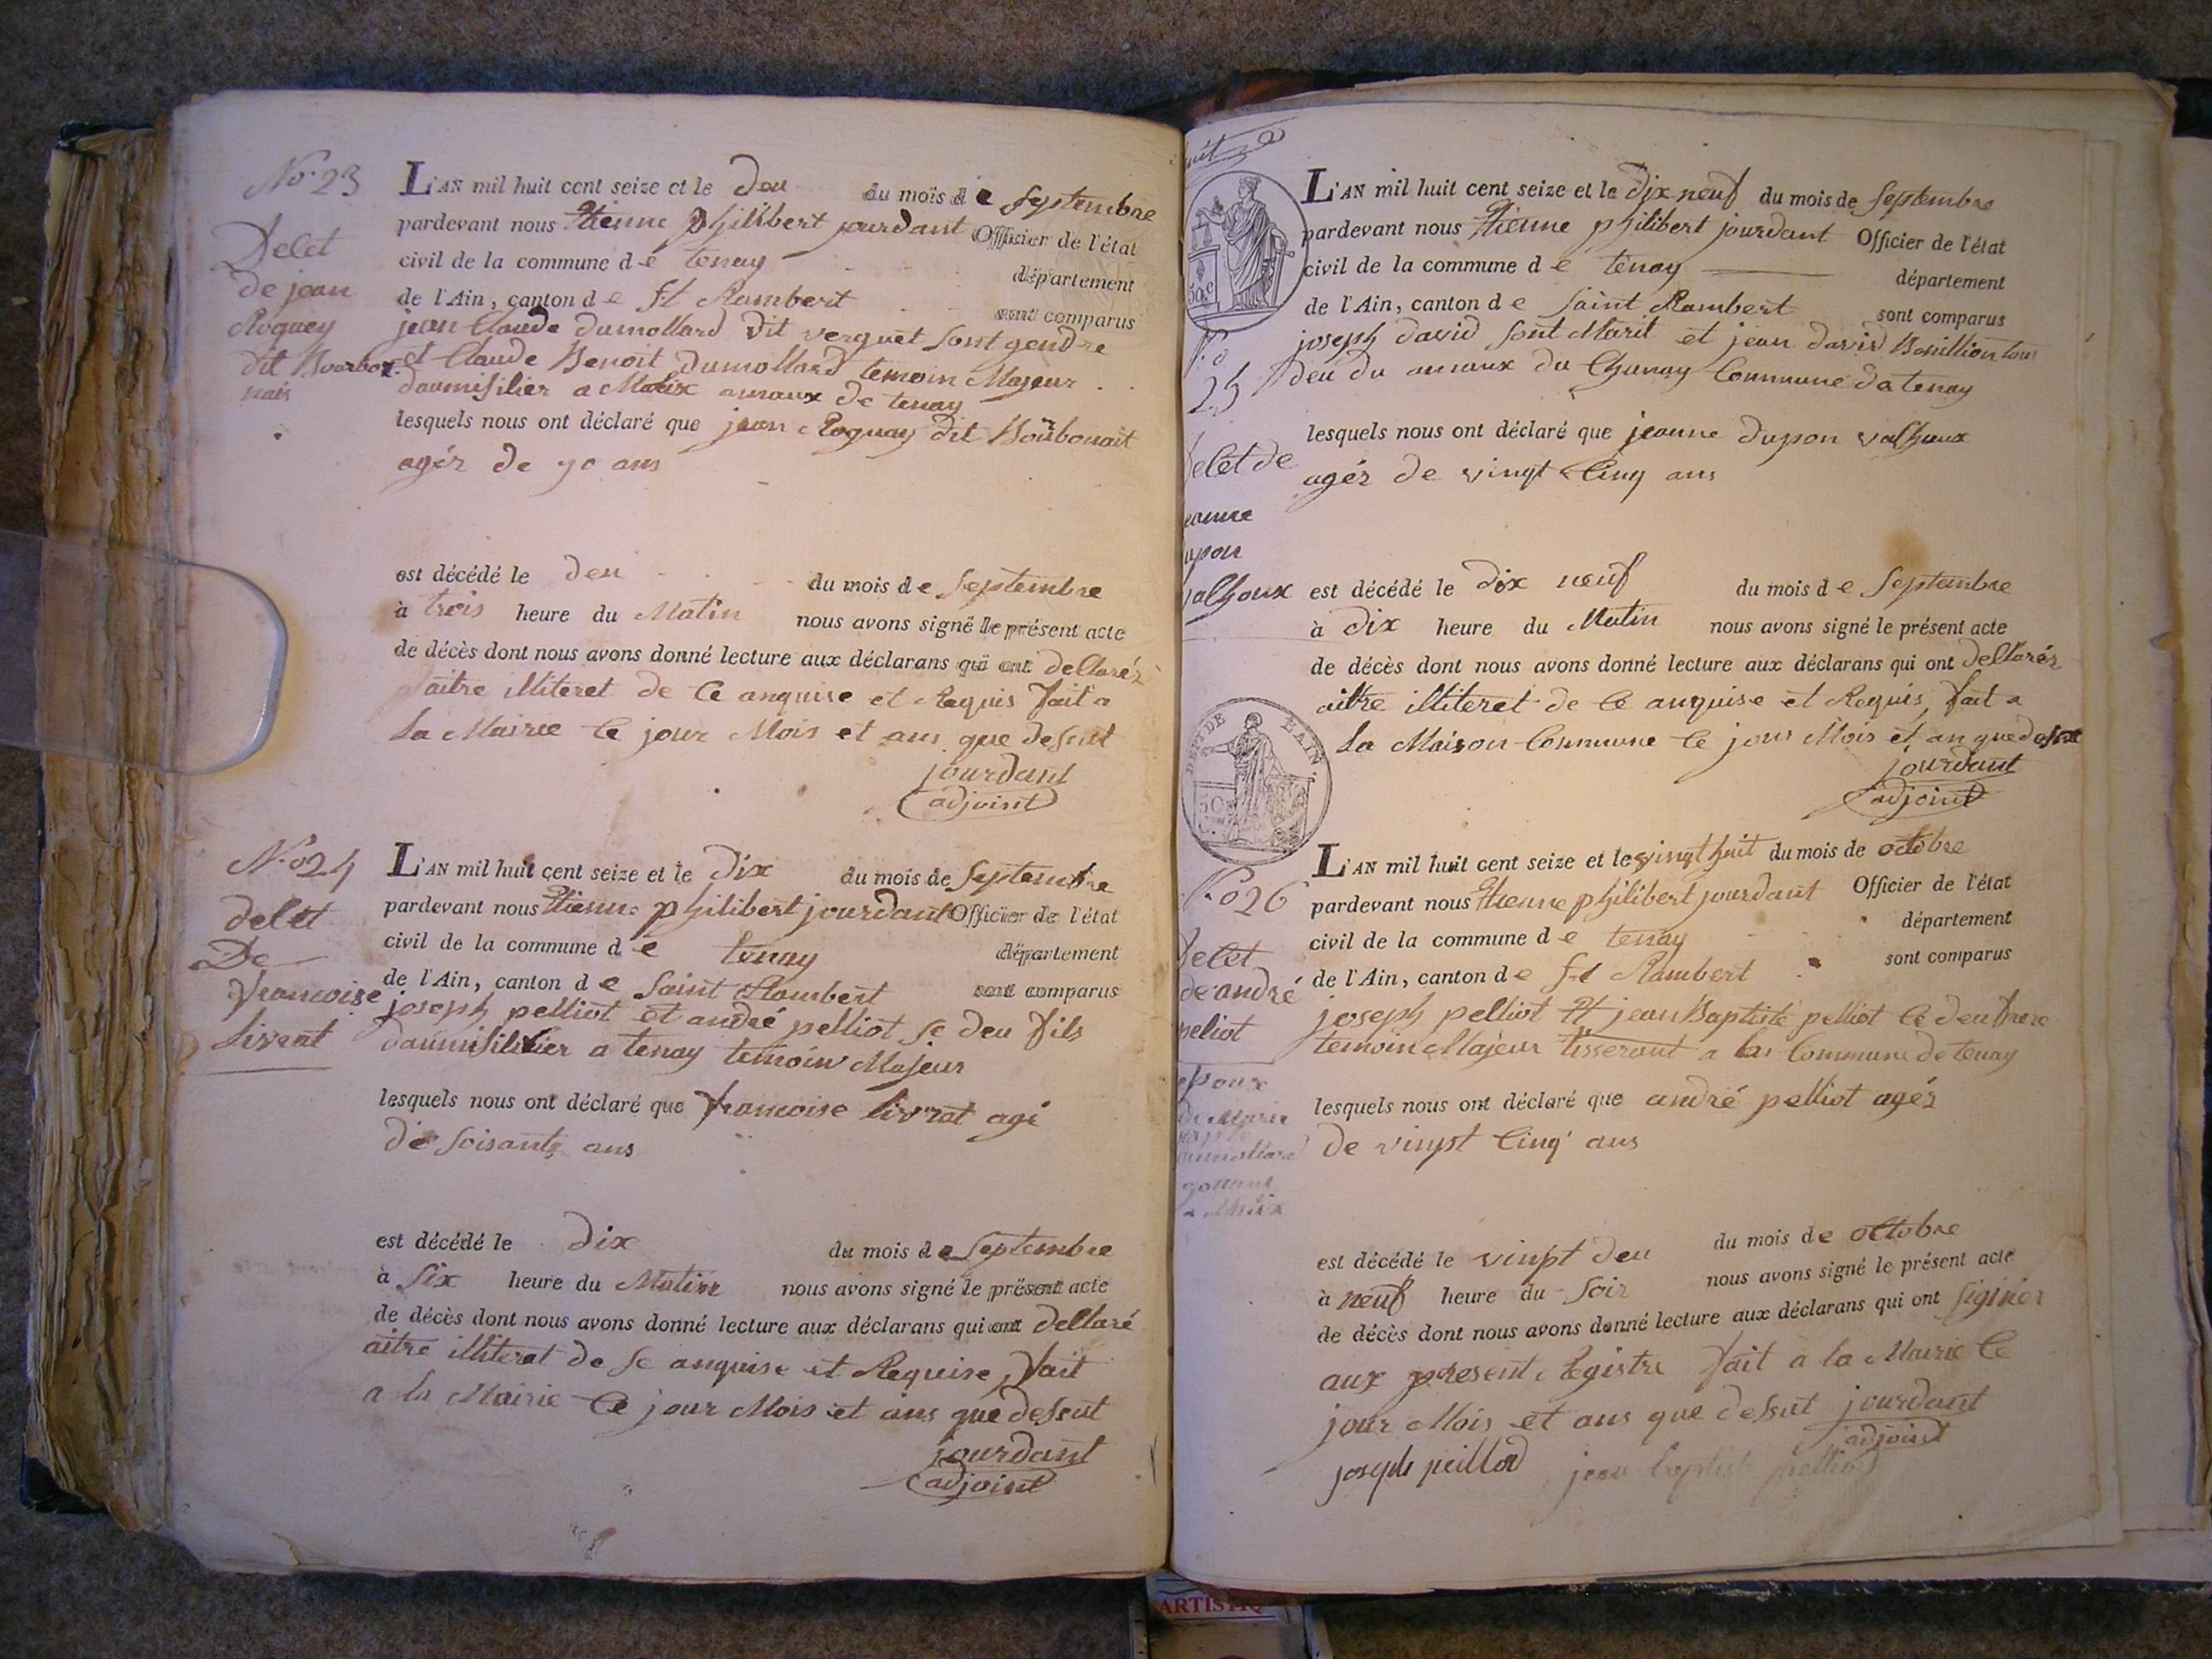 No. 23
Delet
de jean
Roguey
dit Bourbon
nais
L'AN mil huit cent seize et le deu du mois de Septembre
pardevant nous Etienne philibert jourdant Officier de l'état
civil de la commune de tenay département
de l'Ain, canton de St Rambert sont comparus
jean Claude dumollard dit verguet sont gendre
et Claude Benoit dumollard temoin Majeur
daumisilier a Malix amaux de tenay
lesquels nous ont déclaré que jean Roguay dit Boúbonait
agér de 70 ans
est décédé le deu du mois de Septembre
à trois heure du Matin nous avons signé le présent acte
de décès dont nous avons donné lecture aux déclarans qui ont dellarér
aitre illiteret de Ce anquise et Requis fait a
La Mairee Ce jour Mois et ans que desut
jourdant
adjoint
No 24
delet
De
francoise
Livrat
L'AN mil huit cent seize et le Dix du mois de Septembre
pardevant nous Etienne philibert jourdant Officier de l'état
civil de la commune de tenay département
de l'Ain, canton de Saint Rambert sont comparus
joseph pelliot et andré pelliot se deu fils
daumisilier a tenay temoin Majeur
lesquels nous ont déclaré que francoise livrat agé
de soisante ans
est décédé le dix du mois de Septembre
à Six heure du Matin nous avons signé le présent acte
de décès dont nous avons donné lecture aux déclarans qui ont dellaré
aitre illiterat de se anquise et Requise, fait
a la Mairie Ce jour Mois et ans que desut
jourdant
adjoint
50 c
No
25
delet de
jeanne
dupon
valhoux
L'AN mil huit cent seize et le Dix neuf du mois de Septembre
pardevant nous Etienne philibert jourdant Officier de l'état
civil de la commune de tenay département
de l'Ain, canton de Saint Rambert sont comparus
joseph david sont Marit et jean david Bonillion tous
deu du amaux du Chanay Commune da tenay
lesquels nous ont déclaré que jeanne dupon valhoux
agér de vingt Cinq ans
est décédé le dix neuf du mois de Septembre
à dix heure du Matin nous avons signé le présent acte
de décès dont nous avons donné lecture aux déclarans qui ont dellarér
aitre illiteret de Ce anquise et Requis, fait a
La Maison Commune Ce jour Mois et an que desut
jourdant
adjoint
DEPT DE L'AIN.
50
No 26
delet
de andré
peliot
epoux
de Marie
L'AN mil huit cent seize et le vingt huit du mois de octobre
pardevant nous Etienne philibert jourdant Officier de l'état
civil de la commune de tenay département
de l'Ain, canton de St Rambert sont comparus
joseph pelliot Et jean Baptiste pelliot Ce deu frere
temoin Majeur tisserant a la Commune de tenay
lesquels nous ont déclaré que andré pelliot agér
de vinpt Cinq ans
est décédé le vinpt deu du mois de octobre
à neuf heure du Soir nous avons signé le présent acte
de décès dont nous avons donné lecture aux déclarans qui ont siginér
aux present Registre fait à la Mairie Ce
jour Mois et ans que desut jourdant
adjoint
joseph peilliod jean baptist pelliod
ARTISTIQ